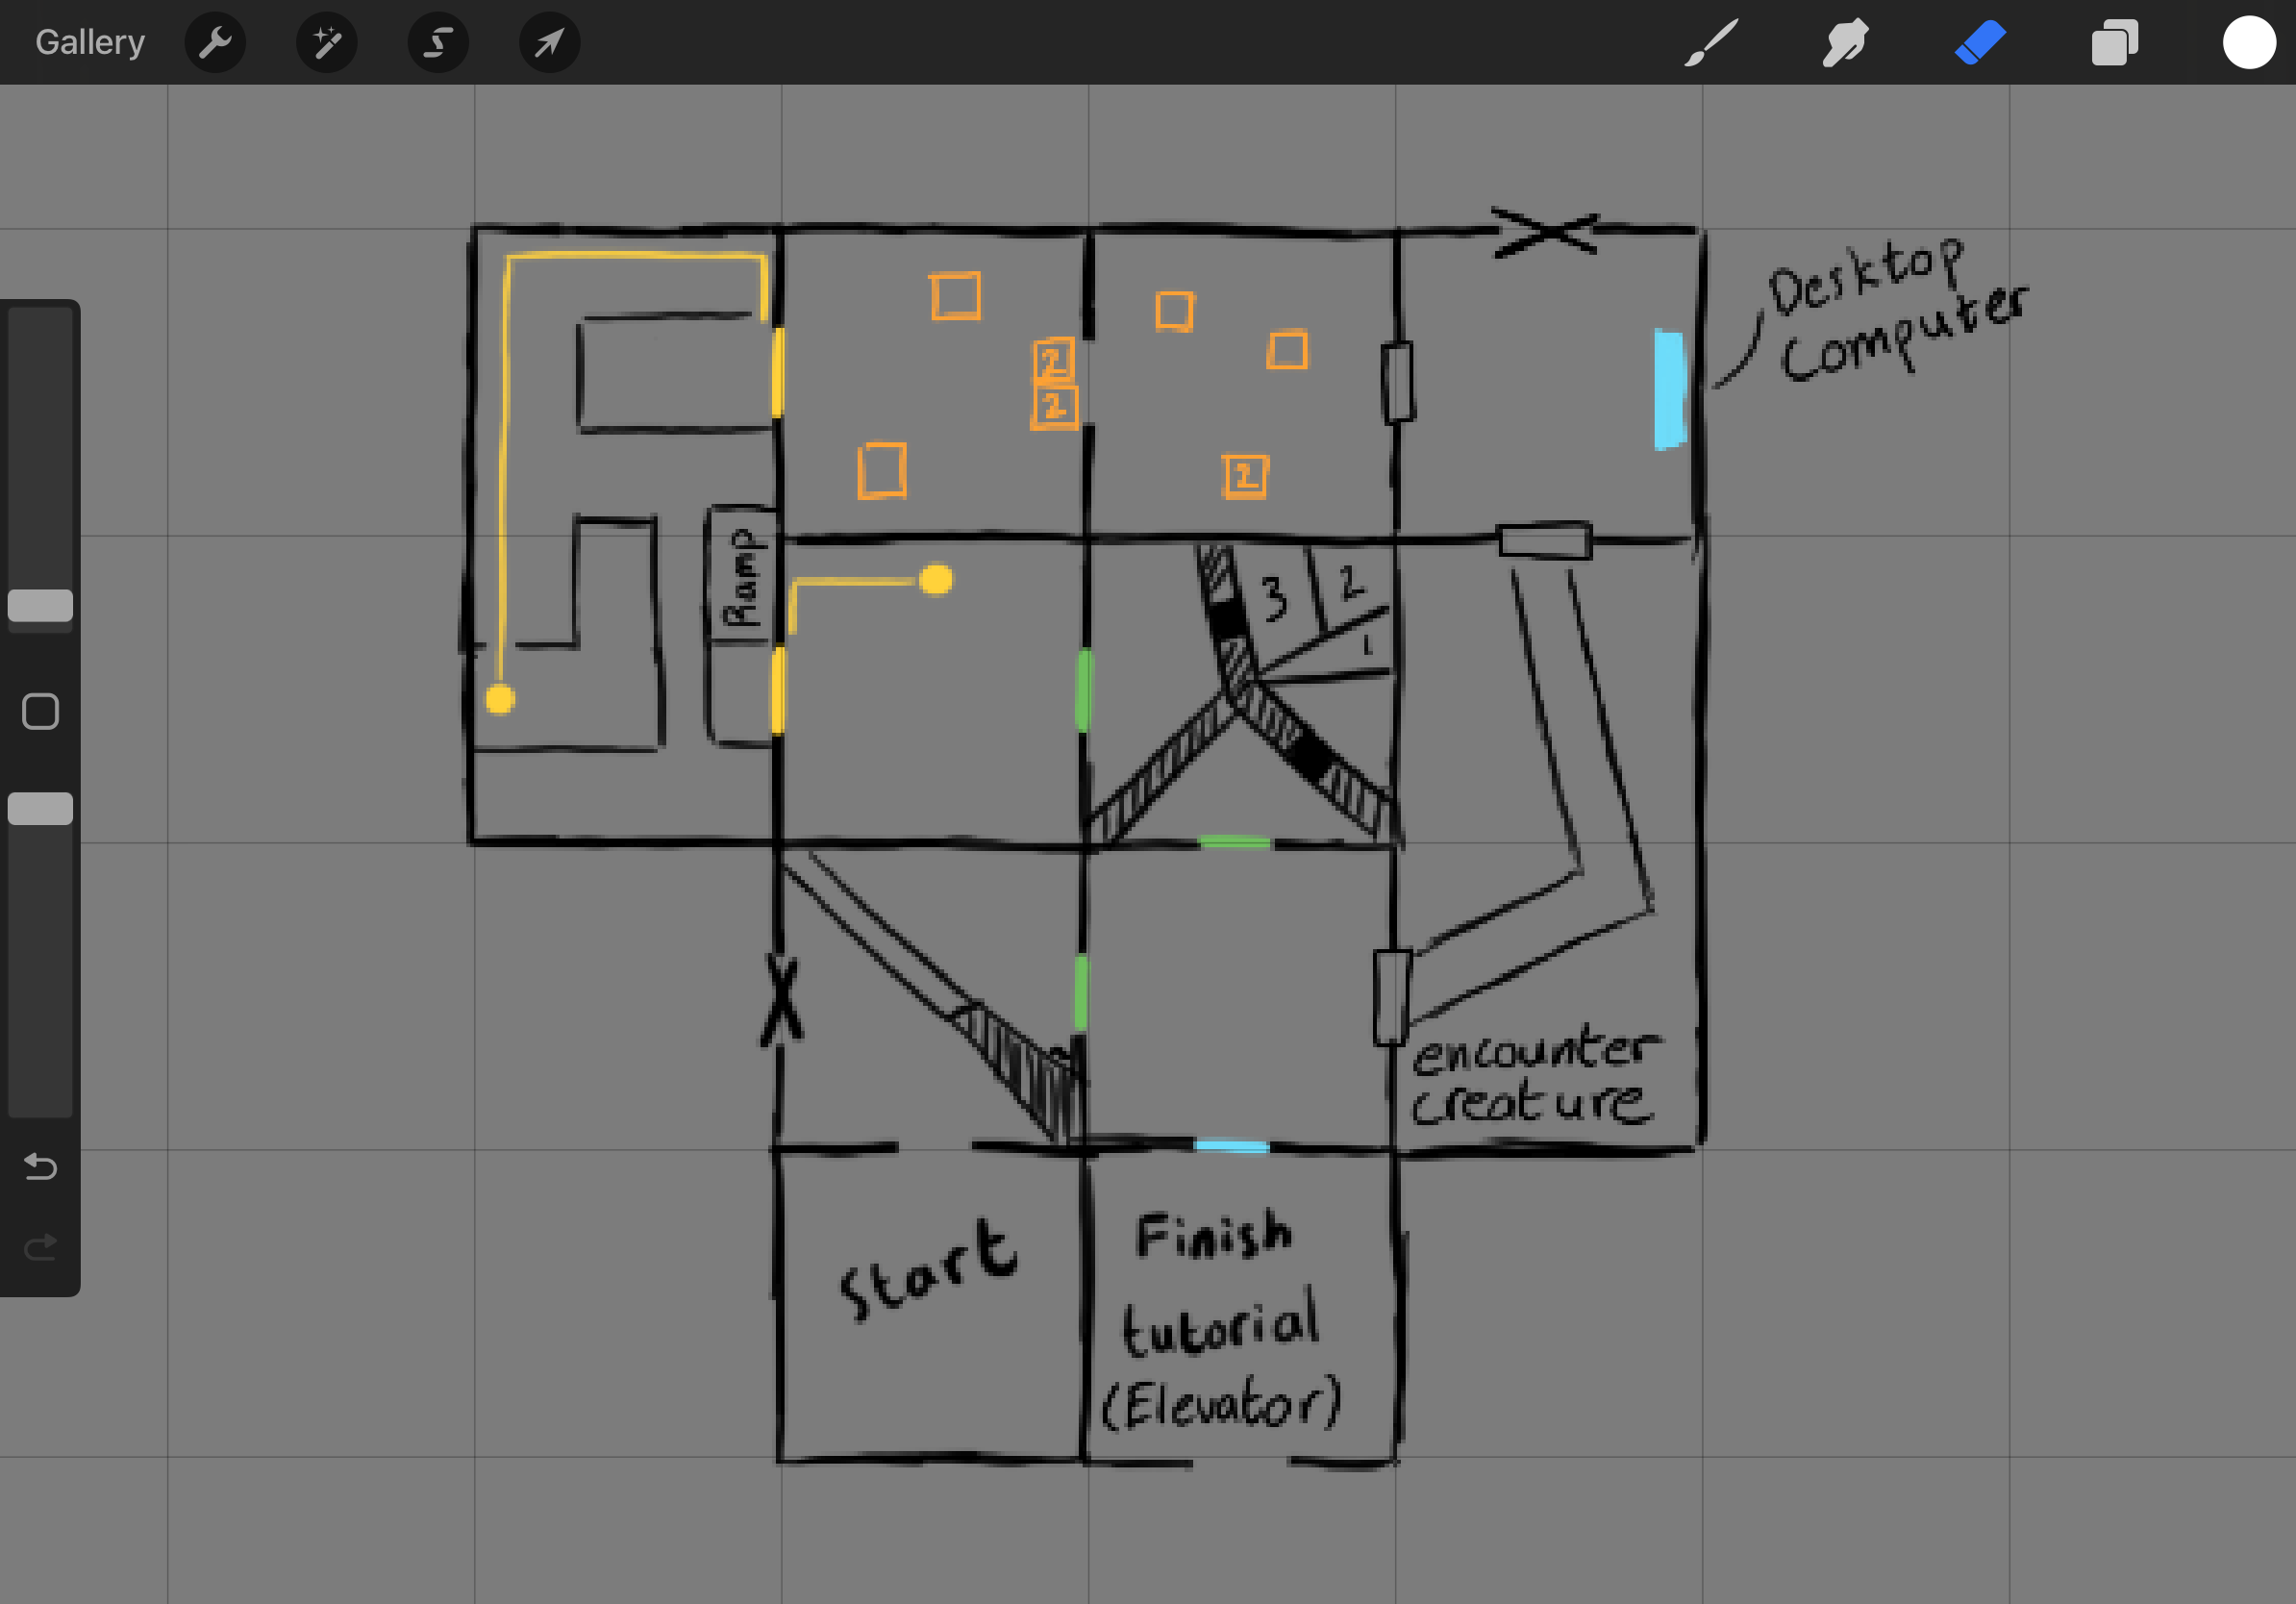 Gallery
Desktop
Computer
2
2
1
Ramp
3
2
1
encounter
creature
Start
Finish
tutorial
(Elevator)